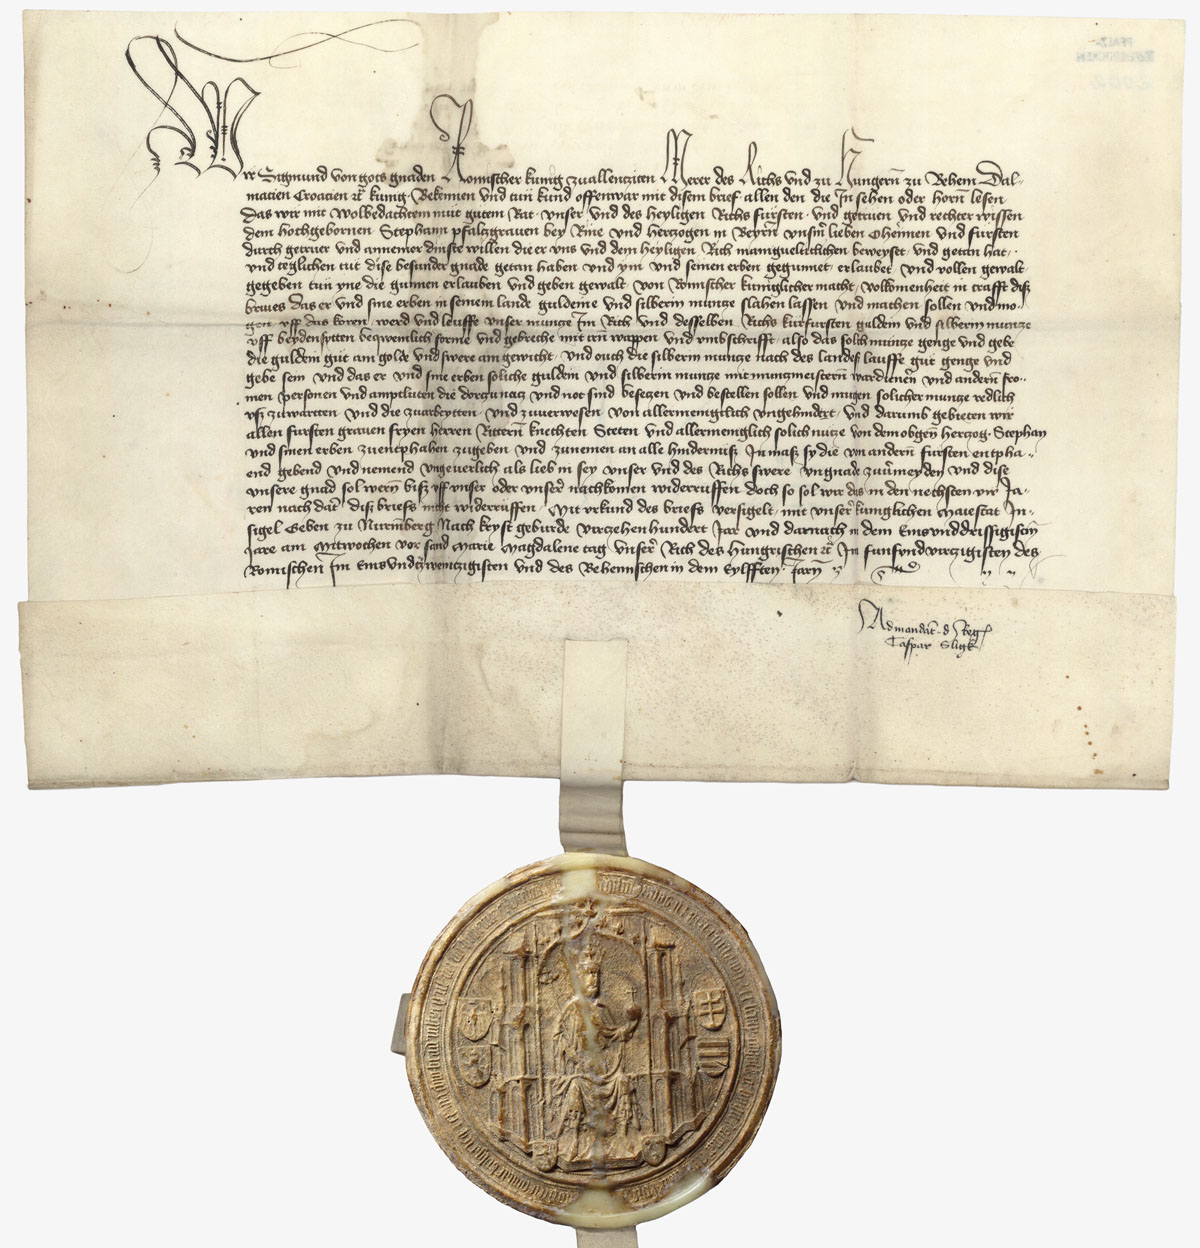 PFALZ-
ZWEIBRÜCKEN
Wir Sigmund von gots gnaden Romischer kunig zuallenziten Merer des Richs und zu Hungern zu Behem Dal-
macien Croacien etc kunig Bekennen und tun kund offenwar mit disem brief allen den die In sehen oder horen lesen
Das wir mit wolbedachtem mute gutem Rat unser und des heyligen Richs fursten und getruen und rechter wissen
dem hochgebornen Stephann pfalzgraven bey Rine und Herzogen in Beyrn unserm lieben Oheimen und fursten
durch getruer und annemer dinste willen die er uns und dem heyligen Rich maniguelticlichen beweyset und getan hat
und teglichen tut dise besunder gnade getan haben und ym und seinen erben gegunnet erlaubet und vollen gewalt
gegeben tun yne die gunnen erlauben und geben gewalt von Romischer kuniglicher macht volkomenheit in crafft diß
brieues Das er und sine erben in seinem lande guldeine und silberin munze slahen lassen und machen sollen und mo-
gen uff das koren werd und leuffe unser munze Im Rich und desselben Richs kurfursten guldein und silberin munze
uff beydensytten beqwemlich forme und gebreche mit irn wappen und umbschrifft also das solch munze genge und gebe
die guldein gut am golde und swere am gewicht und ouch die silberin munze nach des landes lauffe gut genge und
gebe sein und das er und sine erben soliche guldein und silberin munze mit munzmeistern wardienern und andern fro-
men personen und amptluten die dorzu nutz und not sind besetzen und bestellen sollen und mugen solicher munze redlich
uß zuwartten und die zuarbeytten und zuuerwesen von allermeniglich ungehindert und darumb gebieten wir
allen fursten graven fryen herren Rittern knechten Steten und allermeniglich solich mutze von dem obgen herzog Stephan
und sinen erben zuenphahen zugeben und zunemen an alle hinderniß In maß sy die von andern fursten entpha-
end gebend und nemend ungeuerlich als lieb in sey unser und des Richs swere ungnade zuuermeyden und dise
unsere gnad sol wern biß uff unser oder unser nachkomen widerruffen doch so sol wir das in den nechsten vir Ja-
ren nach dat diß briefs nicht widerruffen Mit urkund des briefs versigelt mit unser kuniglichen Maiestat In-
sigel Geben zu Nuremberg Nach kryst geburde virzehenhundert Jar und darnach in dem Einsunddrissigistem
Jare am Mitwochen vor sand Marie Magdalene tag unser Rich des Hungrischen etc Im funfundvirzigisten des
Romischen Im Einsundzwentzigisten und des Behemischen in dem Eylfften Jarn
Ad mandat d Reg
Caspar Sligk